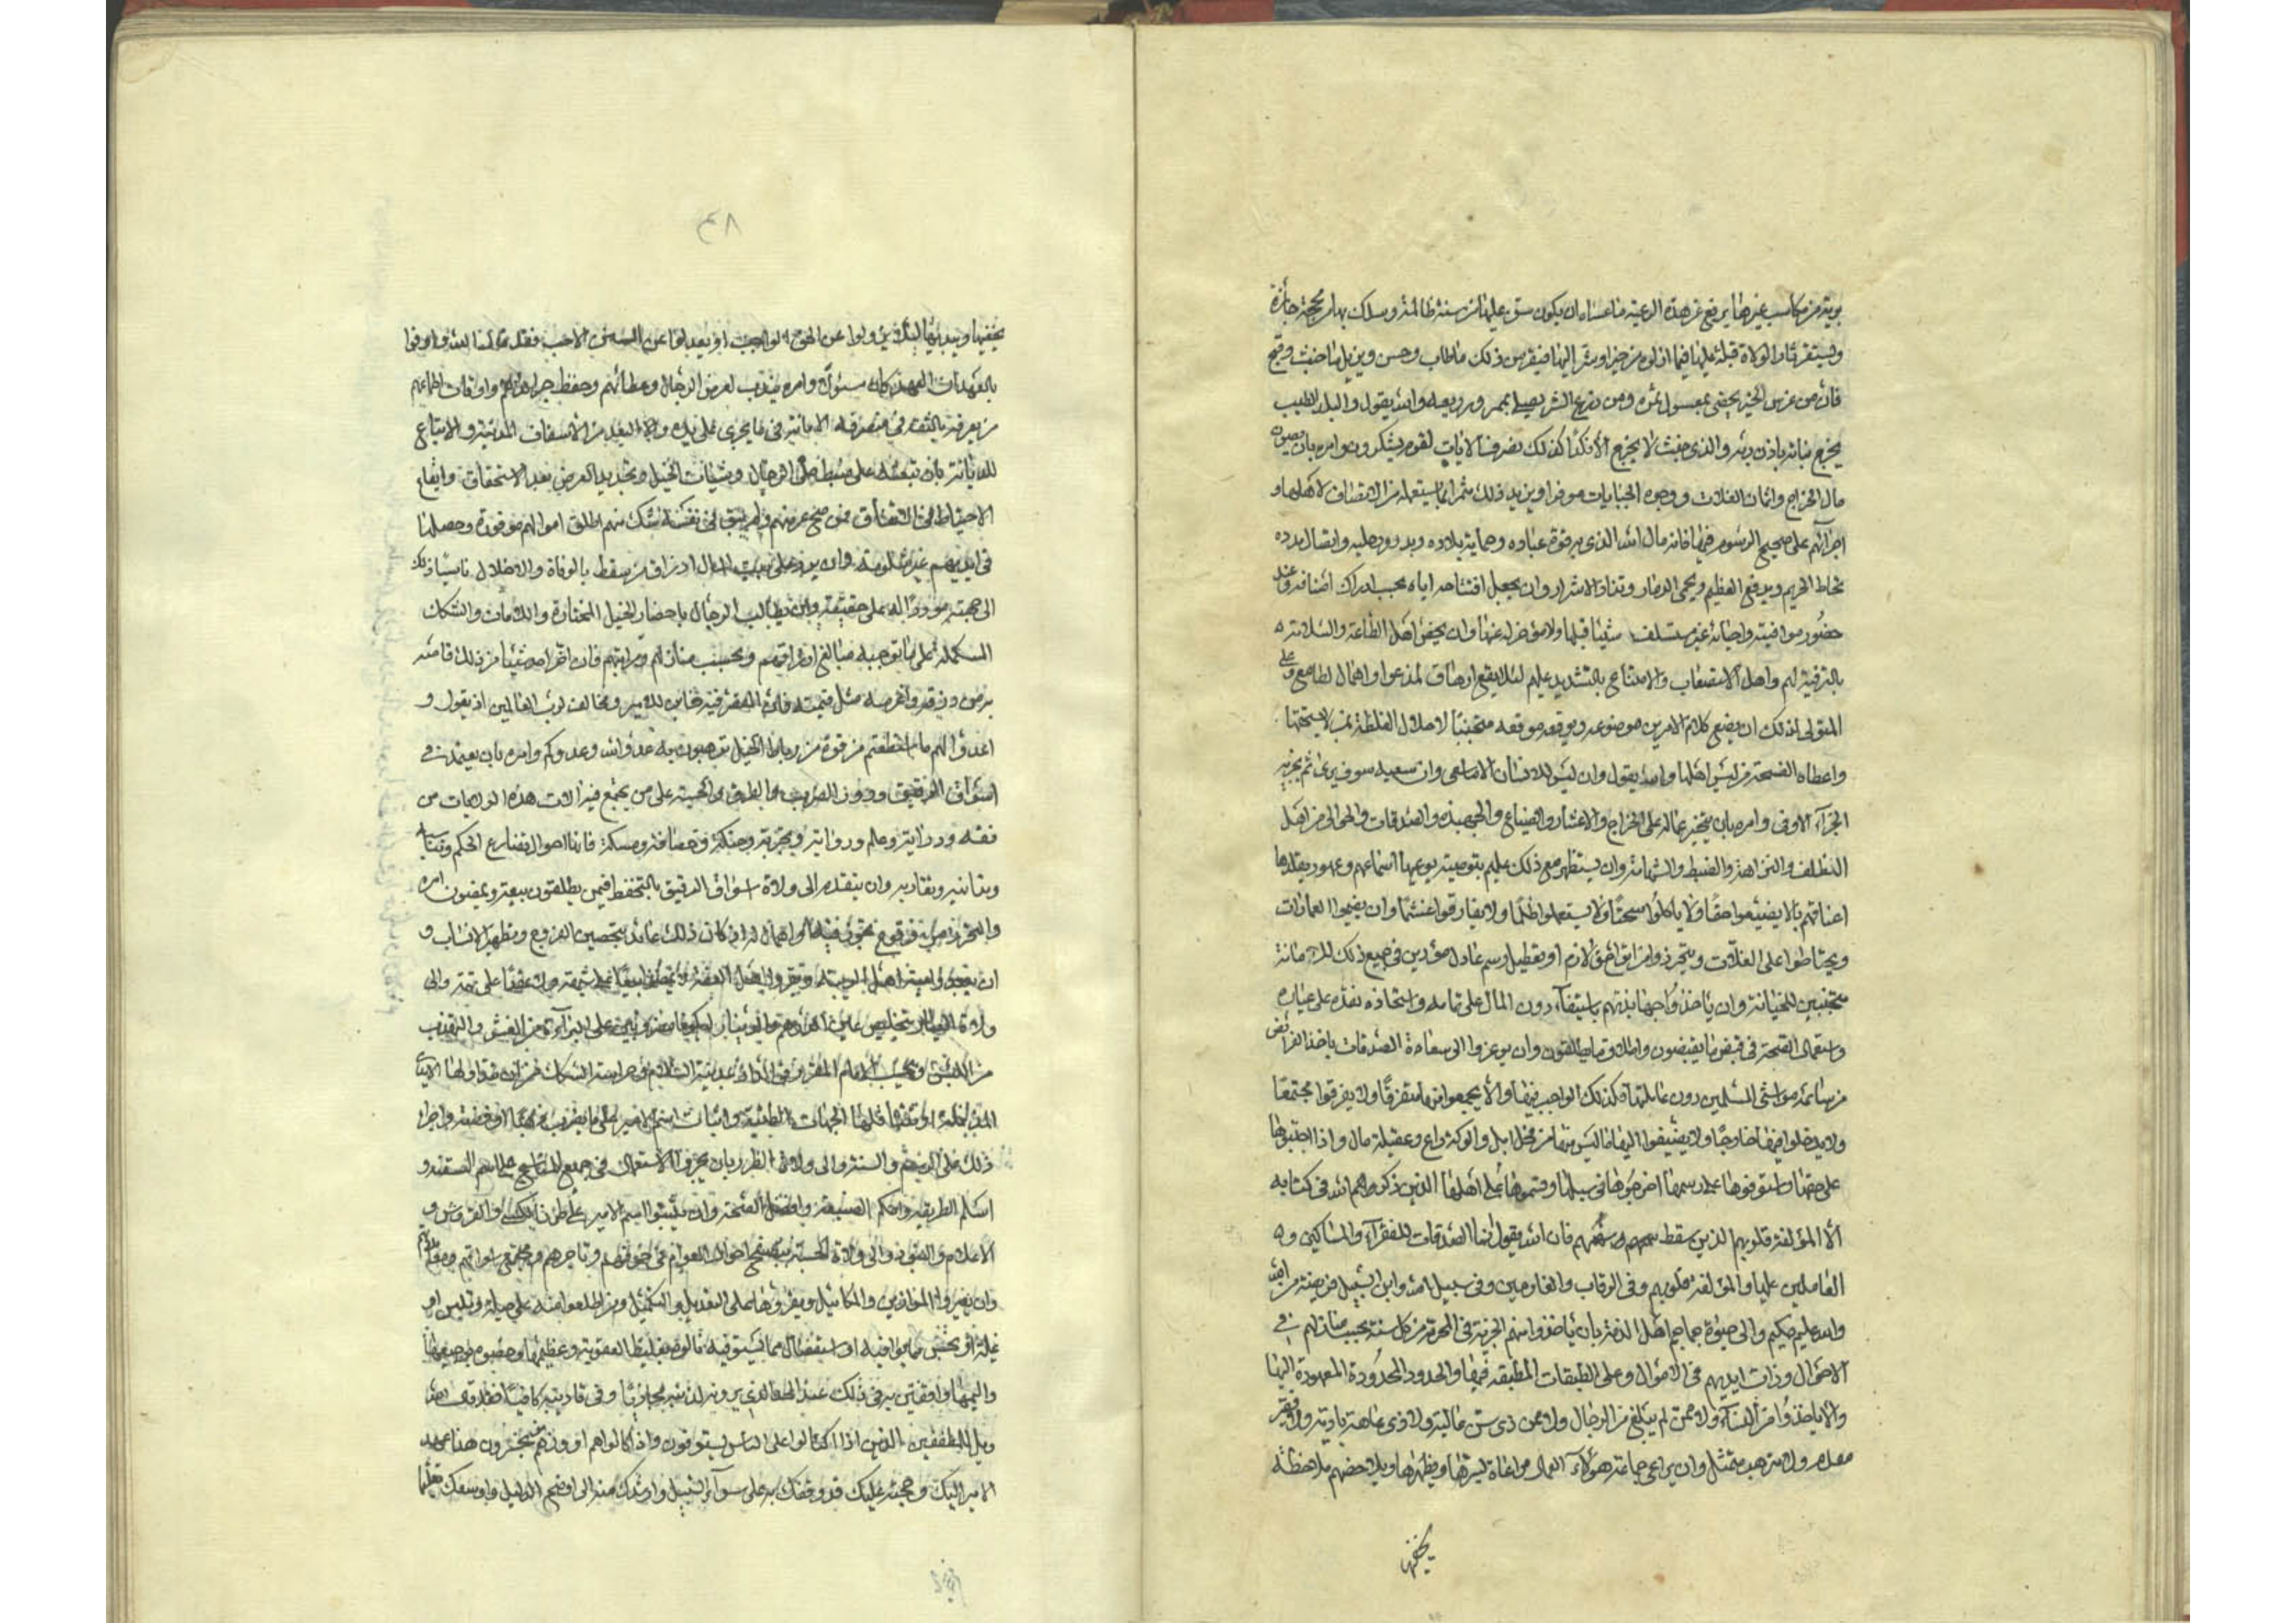 بويه من مكاسب غيرها يرفع عن هذه الرعية ما عساه ان يكون سن عليها من سنة ظالمة وسلك بها من محجة جائرة
وليستقر آثار الولاة قبله عليها فيما ازلوه من خير او شر اليها فيقر من ذلك ما طاب وحسن ويزيل ما خبث وقبح
فان من غرس الخير يحضى بمعسول ثمره ومن زرع الشر يصلى بمرور ريعه والله يقول والبلد الطيب
يخرج نباته باذن ربه والذى خبث لا يخرج الا نكدا كذلك نصرف الايات لقوم يشكرون وامره بان يصون
مال الخراج واثمان الغلات ووجوه الجبايات موفرا ويزيد ذلك مثمرا بما يستعمله من الانصاف لاهلها و
اجرائهم على صحيح الرسوم فيها فانه مال الله الذى به قوة عباده وحماية بلاده ودرور حلبه واتصال مدده
يحاط الحريم ويدفع العظيم ويحمى الذمار وتذاد الاشرار وان يجعل افتتاحه اياه بحسب ادراك اصنافه وعند
حضور مواقيته واحيانه غير مستسلف شيئا قبلها ولا مؤخر له عنها وان يخص اهل الطاعة والسلامة
بالترفيه لهم واهل الاستصعاب والامتناع بالتشديد عليهم لئلا يقع ارهاق لمذعن او اهمال لطامع وعلى
المتولى لذلك ان يضع كلا من الامرين موضعه ويوقعه موقعه متجنبا لاحلال الغلظة بمن لا يستحقها
واعطاه الفسحة من ليس اهلها والله يقول وان ليس للانسان الا ما سعى وان سعيه سوف يرى ثم يجزيه
الجزاء الاوفى وامره بان يتخير عماله على الخراج والاعشار والضياع والجهبذة والصدقات والجوالى من اهل
الظلف والنزاهة والضبط والشهامة وان يستظهر مع ذلك عليهم بتوصية يوعيها اسماعهم وعهود يقلدها
اعناقهم بالا يضيعوا حقا ولا ياكلوا سحتا ولا يستعملوا ظلما ولا يقارفوا غشما وان يقيموا العمارات
ويحتاطوا على الغلات ويتحرزوا من اتواء حق لازم او تعطيل رسم عادل مؤدين فى جميع ذلك للامانة
متجنبين للخيانة وان ياخذوا جهابذتهم باستيفاء وزن المال على تمامه واستجادة نقده على عياره
واستعمال الصحة فى قبض ما يقبضون واطلاق ما يطلقون وان يوعزوا الى سعاة الصدقات باخذ الفرائض
من سائمة مواشى المسلمين دون عاملتها وكذلك الواجب فيها والا يجمعوا فيها متفرقا ولا يفرقوا مجتمعا
ولا يدخلوا فيها خارجا ولا يضيفوا اليها ما ليس منها من فحل ابل واكولة راع وعقيلة مال واذا اجتبوها
على حقها واستوفوها على رسمها اخرجوها فى سبيلها وقسموها على اهلها الذين ذكرهم الله فى كتابه
الا المؤلفة قلوبهم الذين سقط سهمهم فان الله يقول انما الصدقات للفقراء والمساكين و
العاملين عليها والمؤلفة قلوبهم وفى الرقاب والغارمين وفى سبيل الله وابن السبيل فريضة من الله
والله عليم حكيم والى جباة جماجم اهل الذمة بان ياخذوا منهم الجزية فى المحرم من كل سنة بحسب منازلهم فى
الاحوال وذات ايديهم فى الاموال وعلى الطبقات المطبقة فيها والحدود المحدودة المعهودة اليها
والا ياخذوا من النساء ولا ممن لم يبلغ من الرجال ولا من ذى سن عالية ولا ذى عاهة بادية ولا فقير
معدم ولا مترهب متبتل وان يراعى جماعة هؤلاء العمال مراعاة يسرها ويظهرها ويلاحظهم ملاحظة
يخفيها
٤٨
يخفيها ويبديها لئلا يزولوا عن الحق الواجب او يعدلوا عن السنن اللاحب فقد قال الله واوفوا
بالعهد ان العهد كان مسؤلا وامره يندب لعرض الرجال وعطائهم وحفظ جراياتهم واوقات اطماعهم
من يعرفه بالثقة فى متصرفه والامانة فى ما يجرى على يده والبعد من الاسفاف الى الدنية والاتباع
للدناءة بان يبعثه على ضبط حلى الرجال وشيات الخيل وتجديد العرض بعد الاستحقاق وايقاع
الاحتياط فى الانفاق فمن صح عرضهم ولم يبق فى نفسه شك منهم اطلق اموالهم موفورة وحصلها
فى ايديهم غير مثلومة وان يرد على بيت المال ارزاق من سقط بالوفاة والاخلال ناسبا ذلك
الى جهته موردا له على حقيقته وان يطالب الرجال باحضار الخيل المختارة والآلات والشكك
المستكملة على ما توجبه مبالغ ارزاقهم وبحسب منازلهم ومراتبهم فان اخر احد شيئا من ذلك قاصه
به من رزقه واغرمه مثل قيمته فان المقصر فيه خائن للامير ومخالف لرب العالمين اذ يقول و
اعدوا لهم ما استطعتم من قوة ومن رباط الخيل ترهبون به عدو الله وعدوكم وامره بان يعتمد فى
اسواق الرقيق ودور الضرب والطرز والحسبة على من تجتمع فيه آلات هذه الولايات من
ثقة ودراية وعلم ورواية وتجربة وحنكة وحصافة ومسكة فانها احوال تضارع الحكم وتناسبه
وتدانيه وتقاربه وان يتقدم الى ولاة اسواق الرقيق بالتحفظ فيمن يطلقون بيعه ويمضون امره
والتحرز من وقوع تجوز فيه او اهمال له اذ كان ذلك عائدا بتحصين الفروج وتطهير الانساب و
ان يبعدوا عنه اهل الريبة ويقربوا اهل العفة ولا يمضوا بيعا على شبهة ولا عقدا على تهمة والى
ولاة العيار بتخليص عين الدرهم والدينار ليكونا مضروبين على البراءة من الغش والنزاهة
من المش وبحسب الامام المقرر فى مدينة السلام وحراسة السكك من ان تتداولها الايدى
المدغلة او تتناقلها الجهات الظنينة واثبات اسم الامير على ما يضرب منها ذهبا او فضة واجراء
ذلك على الرسم والسنة والى ولاة الطرز بان يجروا الاستعمال فى جميع المناسج على اتم النيقة و
اسلم الطريقة واحكم الصنعة وافضل الصحة وان يثبتوا اسم الامير على طرز الكسى والفرش و
الاعلام والبنود والى ولاة الحسبة بتصفح احوال العوام فى حرفهم ومتاجرهم ومجتمع اسواقهم ومعاملاتهم
وان يعايروا الموازين والمكاييل ويفرزوها على التعديل والتكميل ومن اطلعوا منه على حيلة وتلبيس او
غيلة او تدليس او بخس فيما يوفيه او استفضال مما يستوفيه نالوه بغليظ العقوبة وعظيمها وخصوه بوجيعها
واليمها واقفين به فى ذلك عند الحد الذى يرونه لذنبه مجازيا وفى تاديبه كافيا فقد قال الله
ويل للمطففين الذين اذا اكتالوا على الناس يستوفون واذا كالوهم او وزنوهم يخسرون هذا عهد
الامير اليك وحجته عليك قد وقفك به على سواء السبيل وارشدك منه الى اوضح الدليل واوسعك تعليما